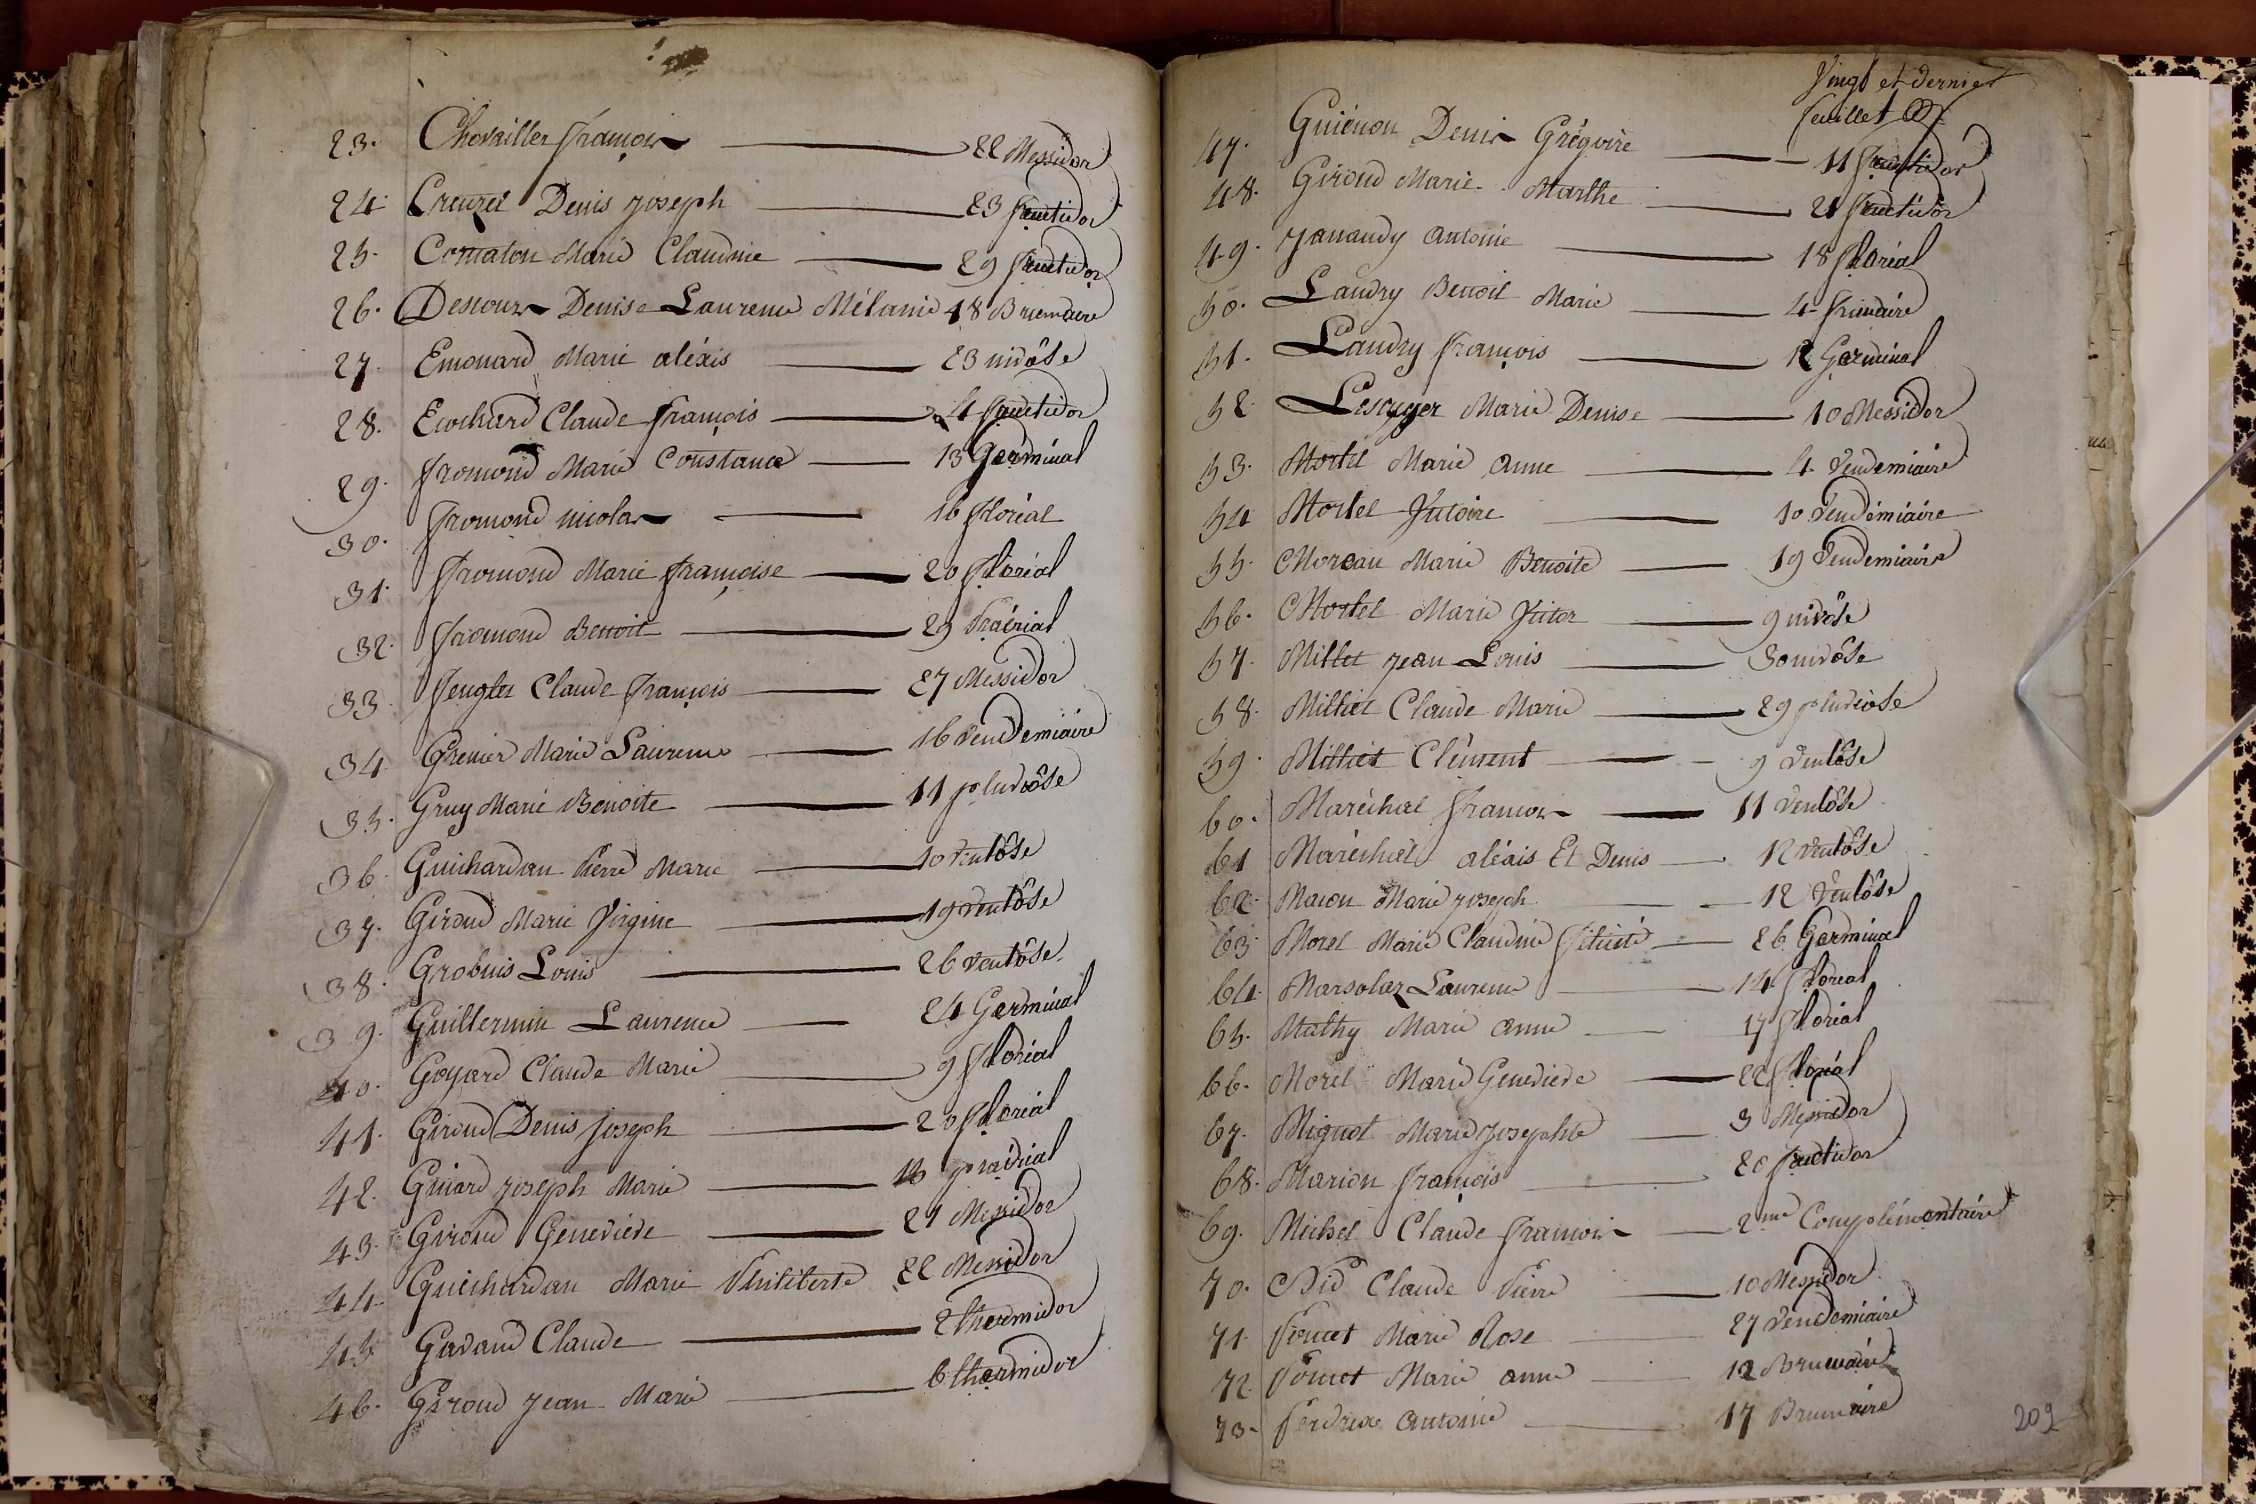 23. Chevailler françois 22 Messidor
24. Creuzet Denis joseph 23 fructidor
25. Comaton Marie Claudine 29 fructidor
26. Descours Denise Laurence Mélanie 18 Brumaire
27. Emonard Marie aléxis 23 nivôse
28. Ecochard Claude françois 4 fructidor
29. fromond Marie Constance 13 Germinal
30. fromond nicolas 16 floréal
31. fromond Marie françoise 20 floréal
32. fromond Benoit 29 Prairial
33 Claude françois 27 Messidor
34 Grenier Marie Laurence 16 Vendemiaire
35. Gruy Marie Benoite 11 pluviôse
36. Guichardan Pierre Marie 10 Ventôse
37. Giroud Marie Virginie 19 Ventôse
38. Grobuis Louis 26 Ventôse
39. Guillermin Laurence 24 Germinal
40. Goyard Claude Marie 9 floréal
41. Giroud Denis joseph 20 floréal
42. Guiard joseph Marie prairial
43. Giroud Genevieve 21 Messidor
44. Guichardan Marie Philiberte 22 Messidor
45 Gavand Claude 2 thermidor
46. Giroud jean Marie 6 thermidor
Vingt et dernier
feuillet
47. Guiénon Denis Grégoire 11 fructidor
48. Giroud Marie Marthe 21 fructidor
49. janaudy antoine 18 floréal
50. Landry Benoit Marie 4 frimaire
51. Landry françois 12 Germinal
52 Lescuyer Marie Denise 10 Messidor
53. Mortel Marie anne 4 Vendemiaire
54 Mortel Victoire 10 Vendémiaire
55. Moreau Marie Benoite 19 Vendemiaire
56. Mortel Marie Victor 9 nivôse
57. Millet jean Louis 30 nivôse
58. Milliet Claude Marie 29 pluviôse
59. Milliet Clément 9 Ventôse
60. Maréchal françois 11 Ventôse
61 Maréchal aléxis Et Denis 12 Ventôse
62. Macon Marie joseph 12 Ventôse
63. Morel Marie Claudine félicité 26 Germinal
64. Marsolaz Laurence 14 floreal
65. Mathy Marie anne 17 floréal
66. Morel Marie Genevieve 22 floréal
67. Mignot Marie josephte 3 Messidor
68. Marion françois 20 fructidor
69. Michel Claude françois 2me Complémentaire
70. Nid Claude Pierre 10 Messidor
71. Poncet Marie Rose 27 Vendemiaire
72. Poncet Marie anne 12 Brumaire
73. Perdrix antoine 17 Brumaire
209